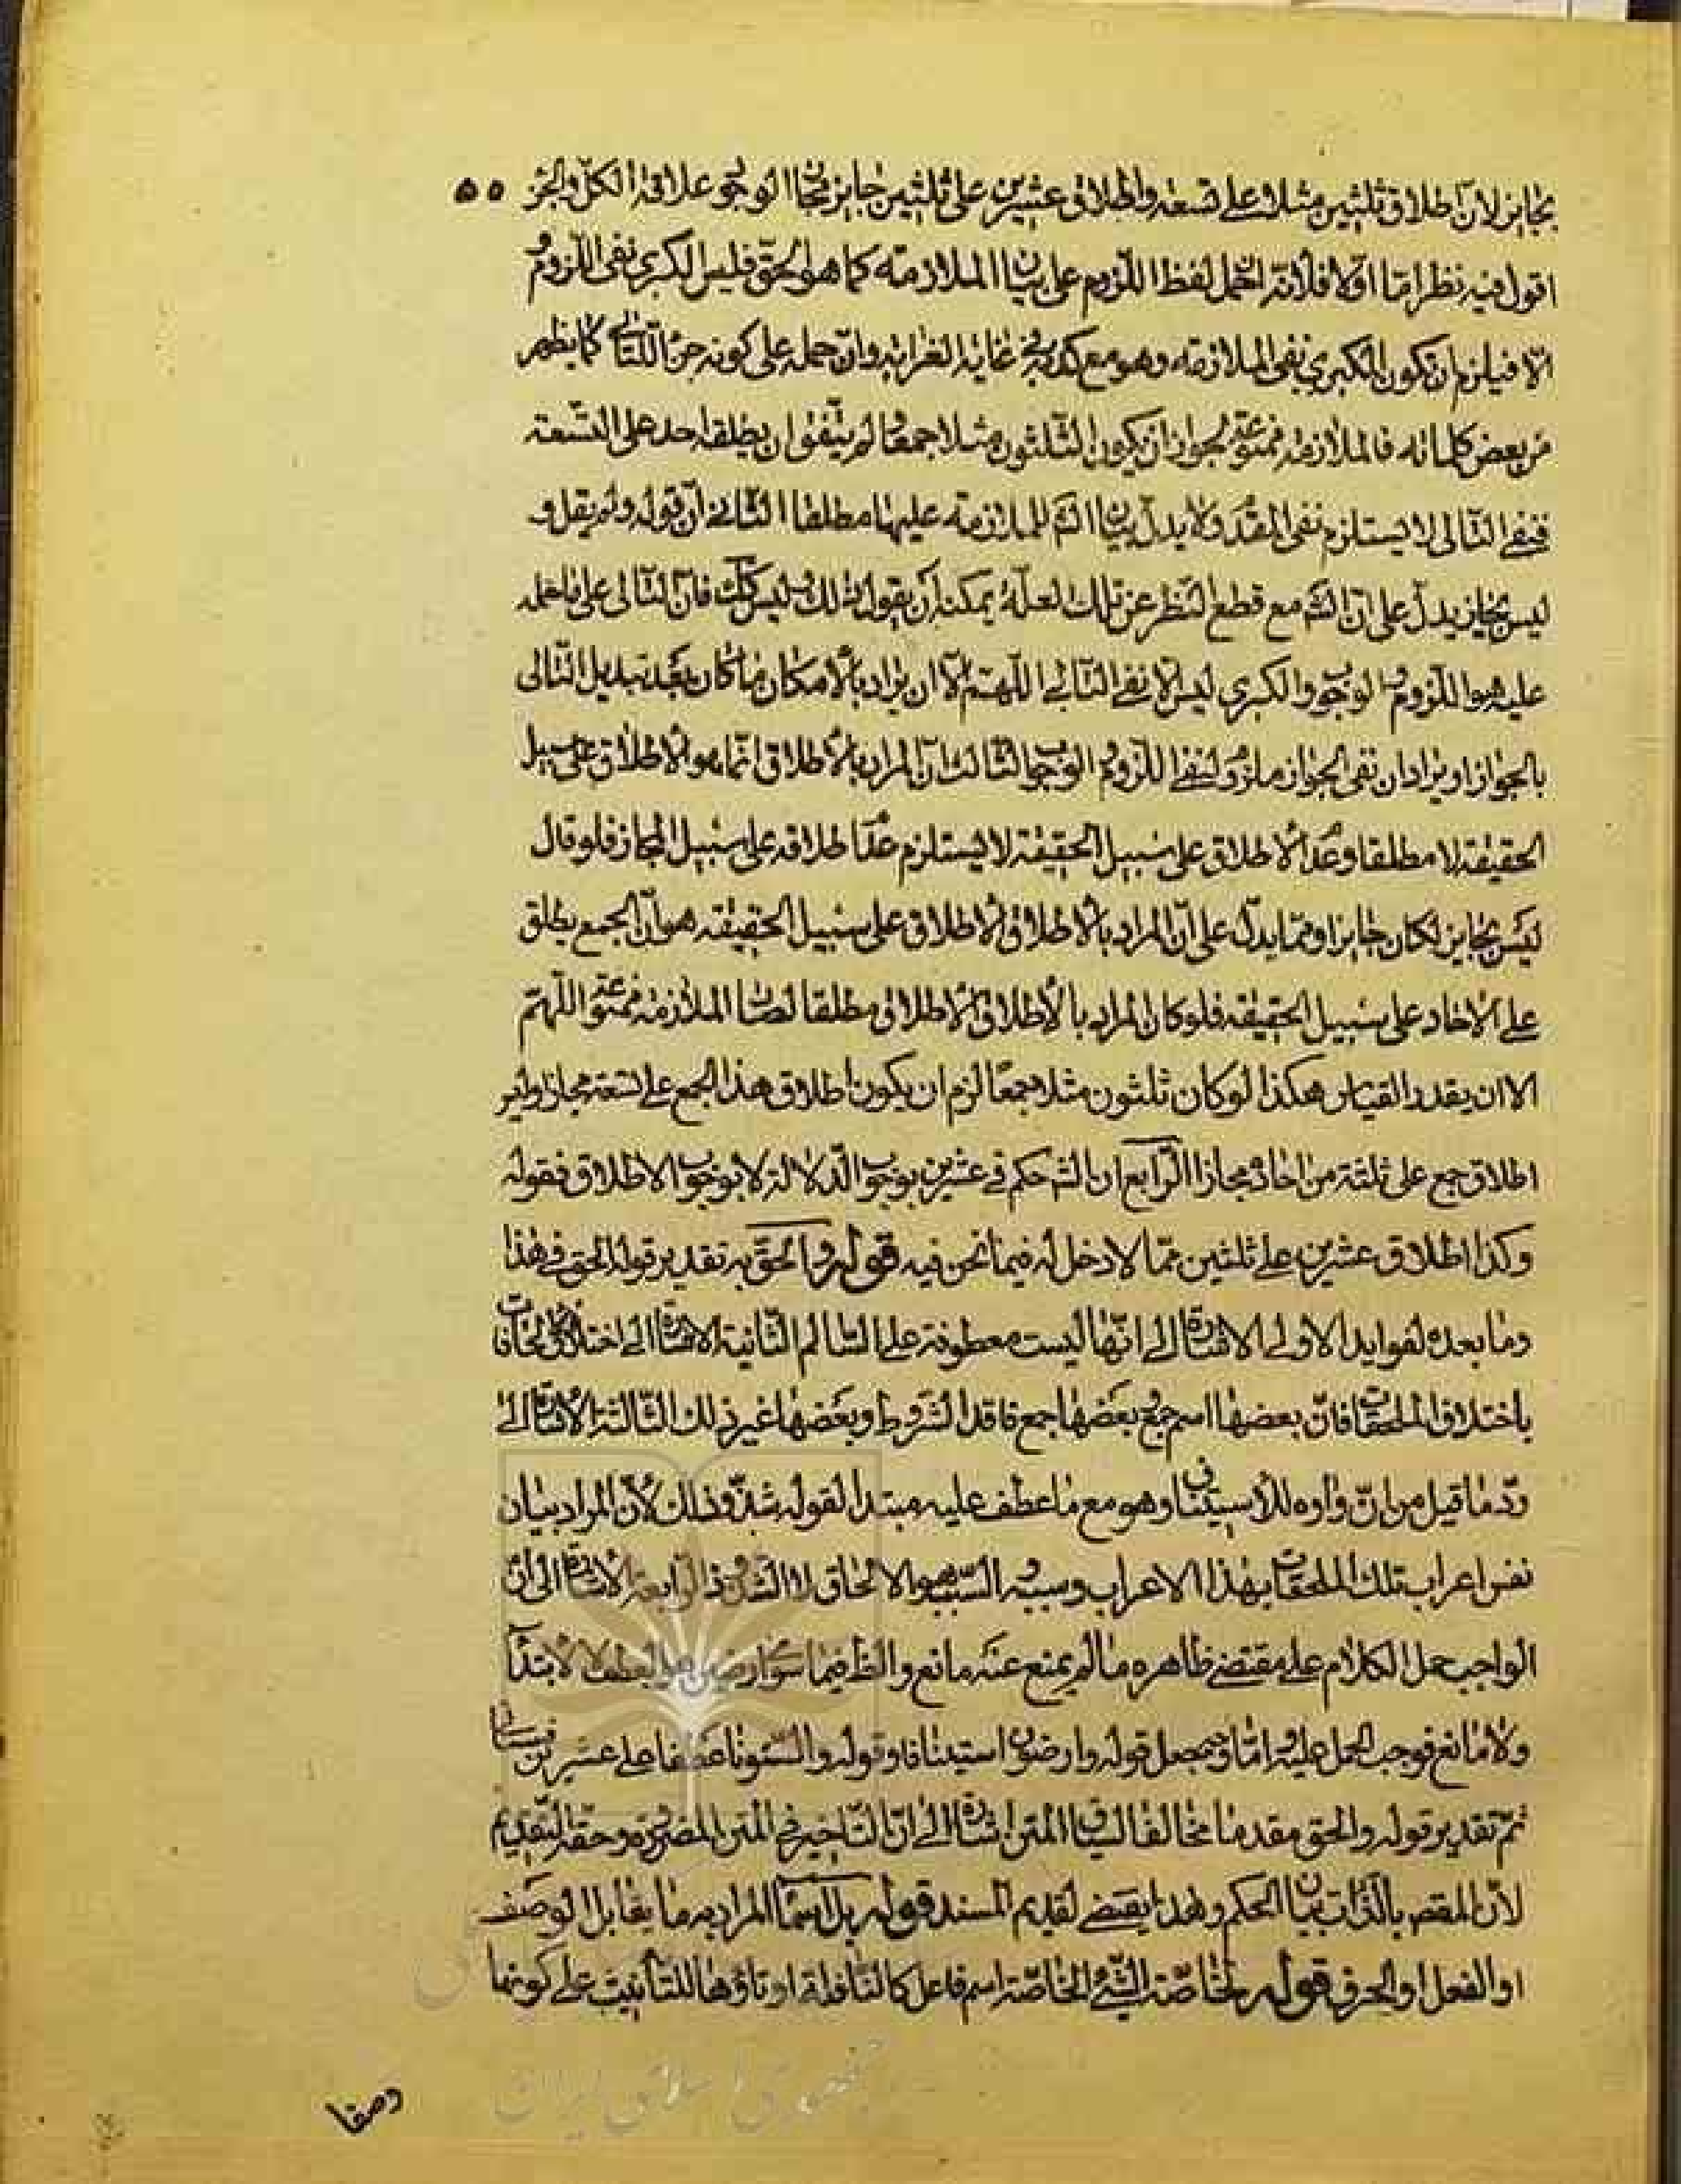 بجايز لان اطلاق ثلثين مثلا على تسعه واطلاق عشرين على ثلثين جايز مجازا لوجود علاقة الكل والجزء ٥٥
اقول فيه نظر اما اولا فلانه ان حمل لفظ اللزوم على بيان الملازمة كما هو الحق فليس الكبرى نفى اللزوم
الا فيلزم ان تكون الكبرى نفى الملازمه وهو مع كذبه فى غاية الغرابه وان حمله على كونه جزء التالى كما يظهر
من بعض كلماته فالملازمه ممنوعة لجواز ان يكون الثلثون مثلا جمعا ولم يتفق ان يطلقه احد على التسعة
فنفى التالى لا يستلزم نفى المقدم ولا يدل بيان الشم للملازمة عليها مطلقا الثانى ان قوله ولم يقل و
ليس بجايز يدل على ان الشم مع قطع النظر عن تلك العلة يمكنه ان يقول ذلك وليس كك فان التالى على ما حمله
عليه هو اللزوم والوجوب والكبرى ليس الا نفى التالى اللهم الا ان يراد بالامكان ما كان بعد تبديل التالى
بالجواز او يراد ان نفى الجواز ملزوم لنفى اللزوم والوجوب الثالث ان المراد بالاطلاق انما هو الاطلاق على سبيل
الحقيقة لا مطلقا وعدم الاطلاق على سبيل الحقيقة لا يستلزم عدم اطلاقه على سبيل المجاز فلو قال
ليس بجايز لكان جايزا ومما يدل على ان المراد بالاطلاق الاطلاق على سبيل الحقيقه هو ان الجمع يطلق
على الاحاد على سبيل الحقيقه فلو كان المراد بالاطلاق الاطلاق مطلقا لصارت الملازمه ممنوعة اللهم
الا ان يقدر القياس هكذا لو كان ثلثون مثلا جمعا لزم ان يكون اطلاق هذا الجمع على تسعة مجازا وليس
اطلاق جمع على ثلثة من احاده مجازا الرابع ان الشم حكم فى عشرين بوجوب الدلالة لا بوجوب الاطلاق فقوله
وكذا اطلاق عشرين على ثلثين مما لا دخل له فيما نحن فيه قوله والحق به تقدير قوله الحق فى هذا
وما بعده لفوايد الاولى الاشارة الى انها ليست معطوفة على السالم الثانية الاشارة الى اختلاف الالحاقات
باختلاف الملحقات فان بعضها اسم جمع وبعضها جمع فاقد الشروط وبعضها غير ذلك الثالثة الاشارة الى
رد ما قيل من ان واوه للاستيناف وهو مع ما عطف عليه مبتدا لقوله شذ وذلك لان المراد بيان
نفس اعراب تلك الملحقات بهذا الاعراب وسببه والسبب هو الالحاق لا الشذوذ الرابعة الاشارة الى ان
الواجب حمل الكلام على مقتضى ظاهره ما لم يمنع عنه مانع والظ فيما سوى ارضون هو العطف لا الابتداء
ولا مانع فوجب الحمل عليه واما وجه جعل قوله وارضون استينافا وقوله والسنونا عطفا على عشرين فسياتى
ثم تقدير قوله والحق مقدما مخالفا لسياق المتن اشارة الى ان التاخير فى المتن للضرورة وحقه التقديم
لان المقصد بالذات بيان الحكم وهذا يقتضى تقديم المسند قوله بل اسما المراد به ما يقابل الوصف
او الفعل او الحرف قوله لخاصة الشئ الخاصة اسم فاعل كالنافلة او تاؤها للتأنيث على كونها
وصفا